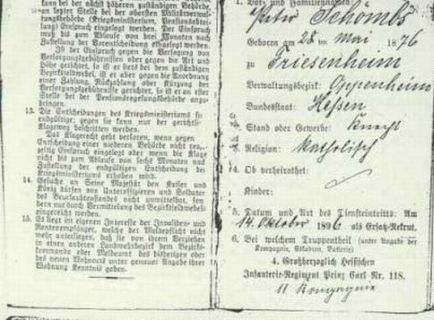 kann bei der nächst höheren zuständigen Behörde,
an letzter Stelle bei der obersten Militärverwal-
tungsbehörde (Kriegsministerium,
Einspruch eingelegt werden. Der Einspruch
muß bis zum Ablaufe von drei Monaten nach
Zustellung der Vorentscheidung eingelegt werden.
Der Einspruch gegen die Versagung von
Versorgungsgebührnissen oder gegen die Art und
Höhe gerichtet, so ist er stets bei dem zuständigen
Bezirksfeldwebel, ist er aber gegen die Anordnung
einer Zahlung, Rückzahlung oder Kürzung der
Versorgungsgebührnisse gerichtet, so ist er stets
bei der Pensionsregelungsbehörde anzu-
bringen.
13. Die Entscheidungen des Kriegsministeriums sind
endgültig, gegen sie kann nur der gerichtliche
Klageweg beschritten werden.
Das Klagerecht geht verloren, wenn gegen
Entscheidung einer niederen Behörde nicht recht-
zeitig Einspruch eingelegt oder wenn die Klage
nicht bis zum Ablaufe von sechs Monaten nach
Zustellung der endgültigen Entscheidung des
Kriegsministeriums erhoben wird.
14. Gesuche an Seine Majestät den Kaiser und
König dürfen die Unteroffiziere und Soldaten
des Beurlaubtenstandes nicht unmittelbar, son-
dern nur durch Vermittelung des Bezirksfeldwebels
einreichen.
15. Es liegt im eigenen Interesse der Invaliden- und
Rentenempfänger, welche der Meldepflicht nicht
mehr unterliegen, daß sie von ihrem Verziehen
in einen anderen Landwehrbezirk dem Bezirks-
kommando oder Meldeamt des bisherigen oder
des neuen Wohnorts unter genauer Angabe ihrer
Wohnung Kenntnis geben.
1. Vor- und Familienname:
Peter Schömbs
Geboren am 28 ten Mai 1876
zu Friesenheim
Verwaltungsbezirk: Oppenheim
Bundesstaat: Hessen
2. Stand oder Gewerbe: Knecht
3. Religion: Katholisch
4. Ob verheiratet:
Kinder:
5. Datum und Art des Diensteintritts: Am
14. Oktober 1896 als Ersatz-Rekrut.
6. Bei welchem Truppentheil (unter Angabe der
Kompagnie, Eskadron, Batterie)
4. Großherzoglich Hessischen
Infanterie-Regiment Prinz Carl Nr. 118.
11 Kompagnie